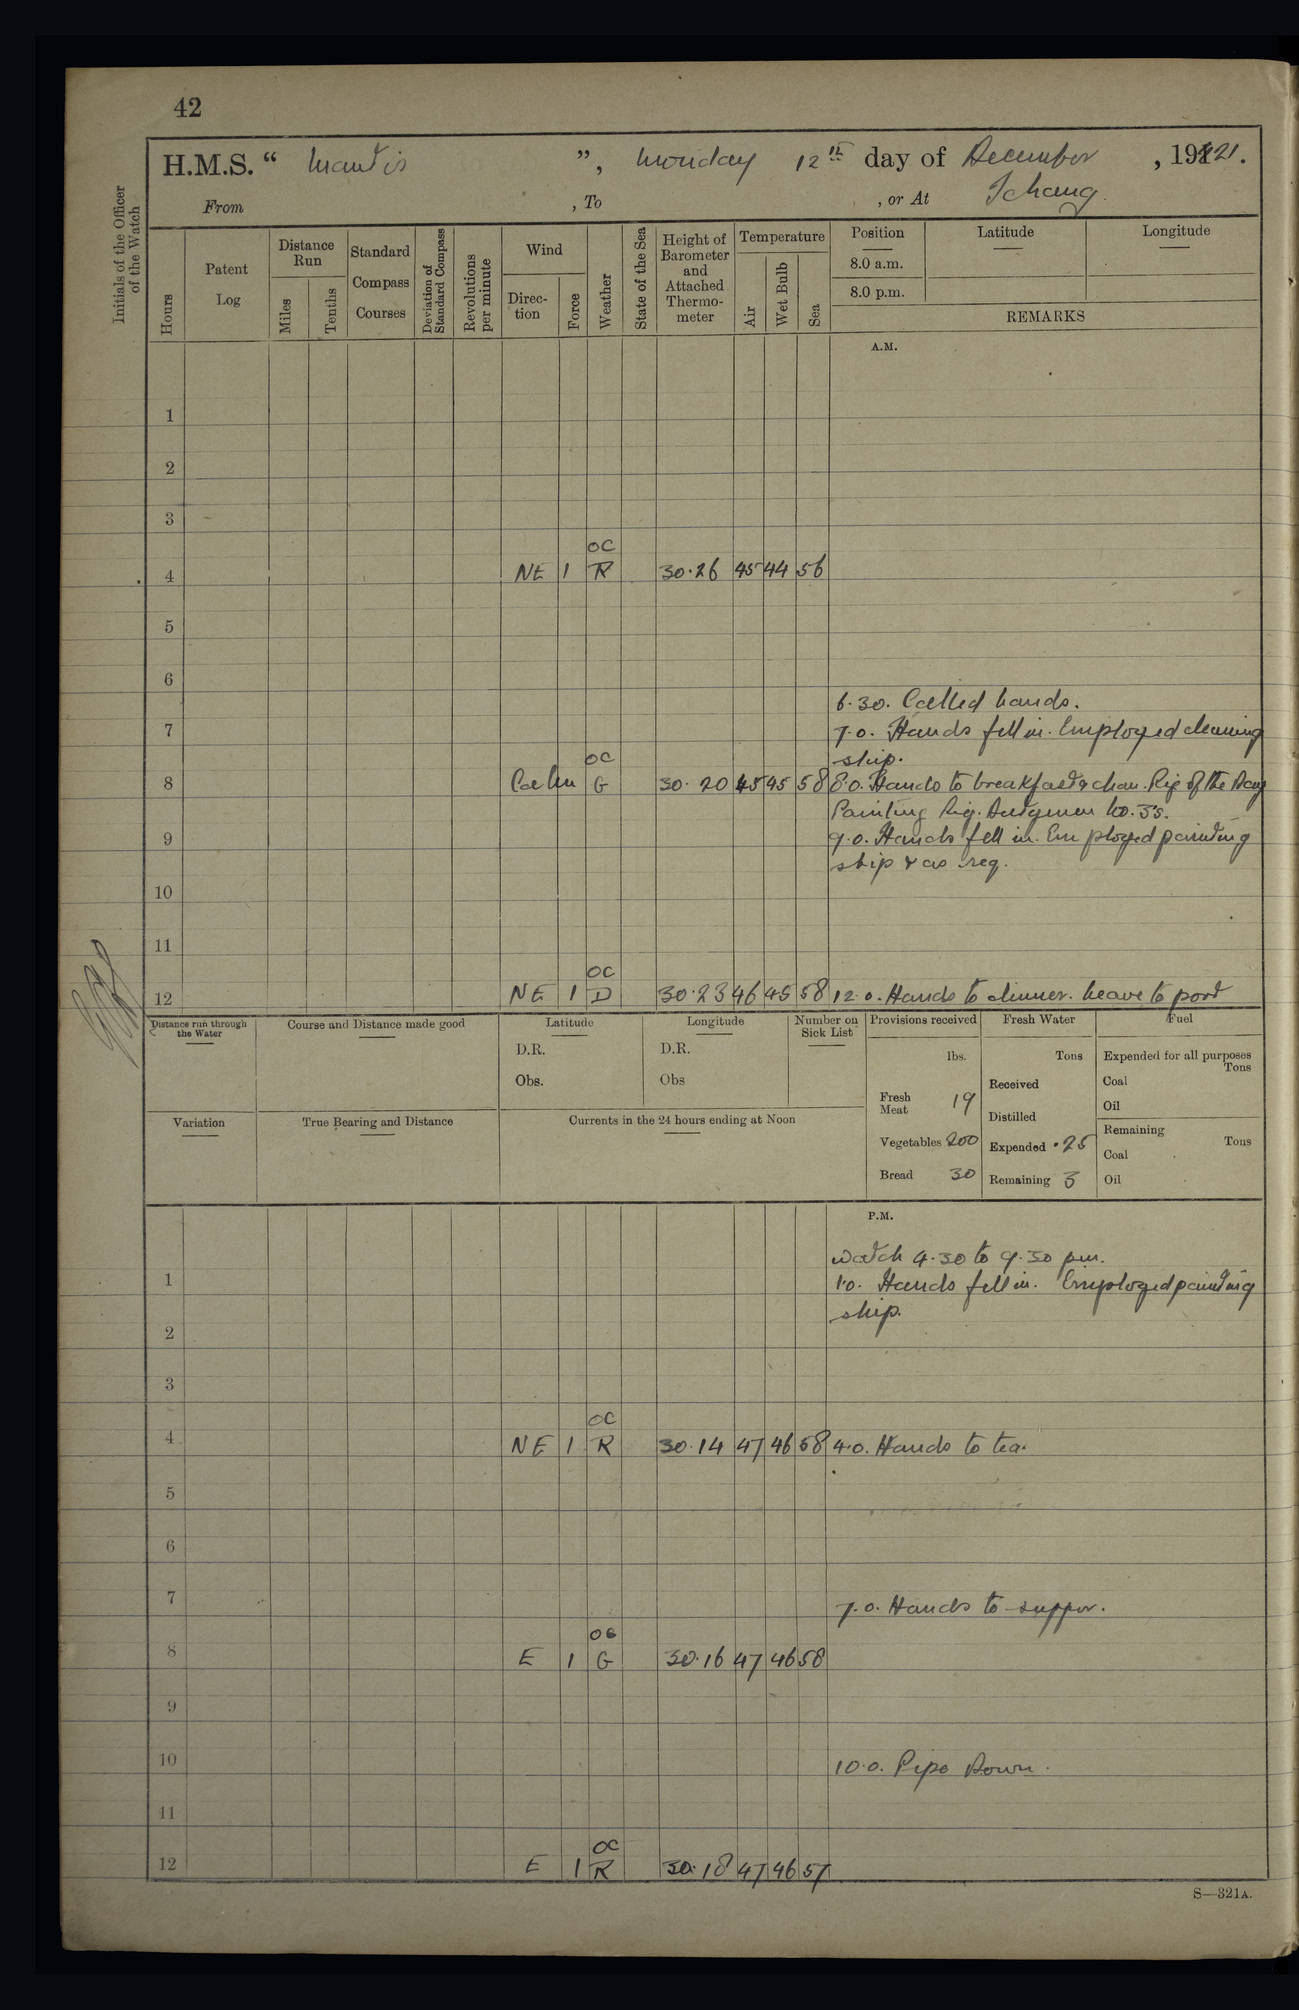 42
H.M.S. “ Mantis ”, Monday 12th day of December, 1921.
From , To , or At Ichang.
Initials of the Officer of the Watch
Hours
Patent Log
Distance Run
Miles
Tenths
Standard Compass Courses
Deviation of Standard Compass
Revolutions per minute
Wind
Direction
Force
Weather
State of the Sea
Height of Barometer and Attached Thermometer
Temperature
Air
Wet Bulb
Sea
Position
8.0 a.m.
8.0 p.m.
Latitude
Longitude
REMARKS
A.M.
1
2
3
OC
4 NE 1 R 30.26 45 44 56
5
6
6.30. Called hands.
7 7.0. Hands fell in. Employed cleaning
ship.
OC
8 Calm G 30.20 45 45 58 8.0. Hands to breakfast & clean. Rig of the Day
Painting Rig. Dutymen No. 3's.
9 9.0. Hands fell in. Employed painting
ship & as req.
10
11
OC
12 NE 1 D 30.23 46 45 58 12.0. Hands to dinner. Leave to port
Distance run through the Water
Course and Distance made good
Latitude
D.R.
Obs.
Longitude
D.R.
Obs
Number on Sick List
Provisions received
lbs.
Fresh Meat 19
Vegetables 200
Bread 30
Fresh Water
Tons
Received
Distilled
Expended .25
Remaining 3
Fuel
Expended for all purposes
Tons
Coal
Oil
Remaining
Tons
Coal
Oil
Variation
True Bearing and Distance
Currents in the 24 hours ending at Noon
P.M.
watch 4.30 to 9.30 pm.
1 1.0. Hands fell in. Employed painting
ship.
2
3
OC
4 NE 1 R 30.14 47 46 58 4.0. Hands to tea.
5
6
7 7.0. Hands to supper.
OC
8 E 1 G 30.16 47 46 58
9
10 10.0. Pipe Down.
11
OC
12 E 1 R 30.18 47 46 57
S—321A.